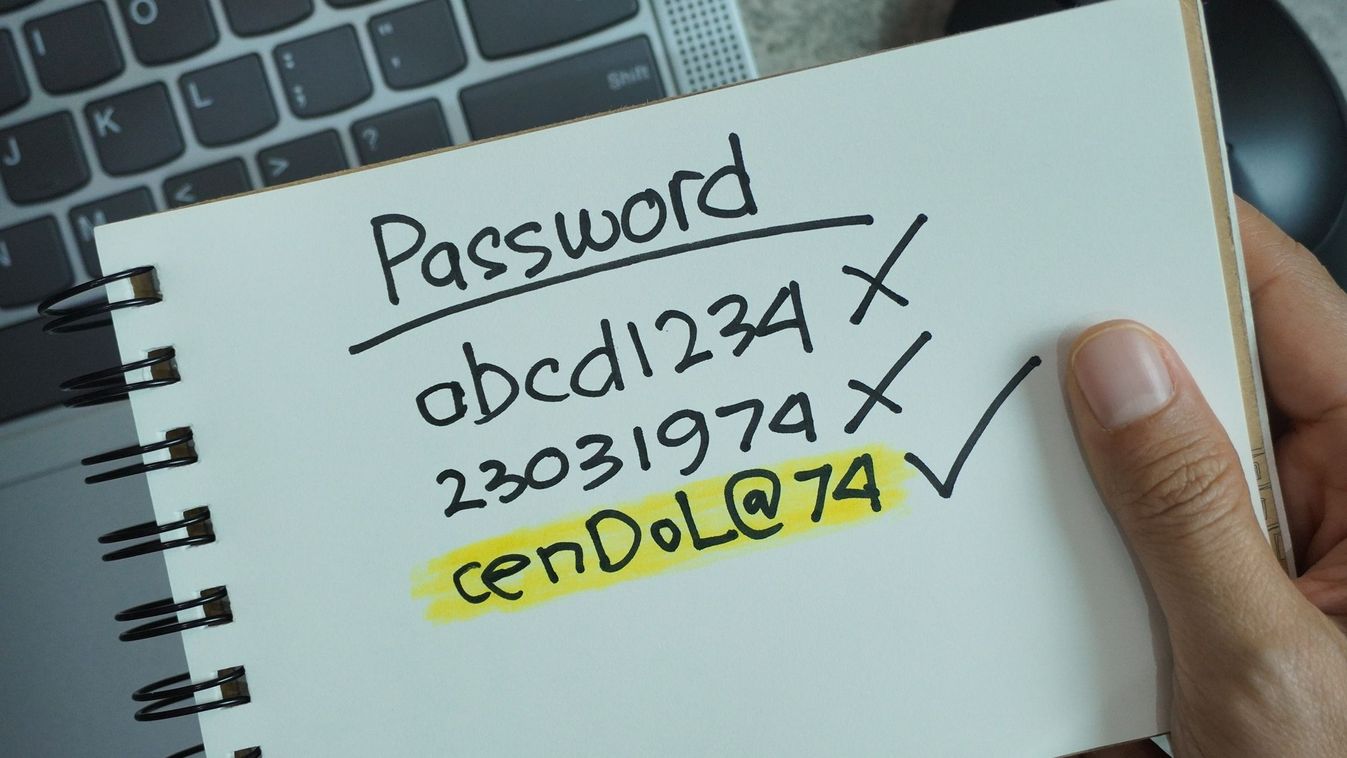 O
I
L
K
J
:
;
"
'
Shift
?
>
<
M
N
Password
abcd1234 X
23031974 X
cenDoL@74 ✓